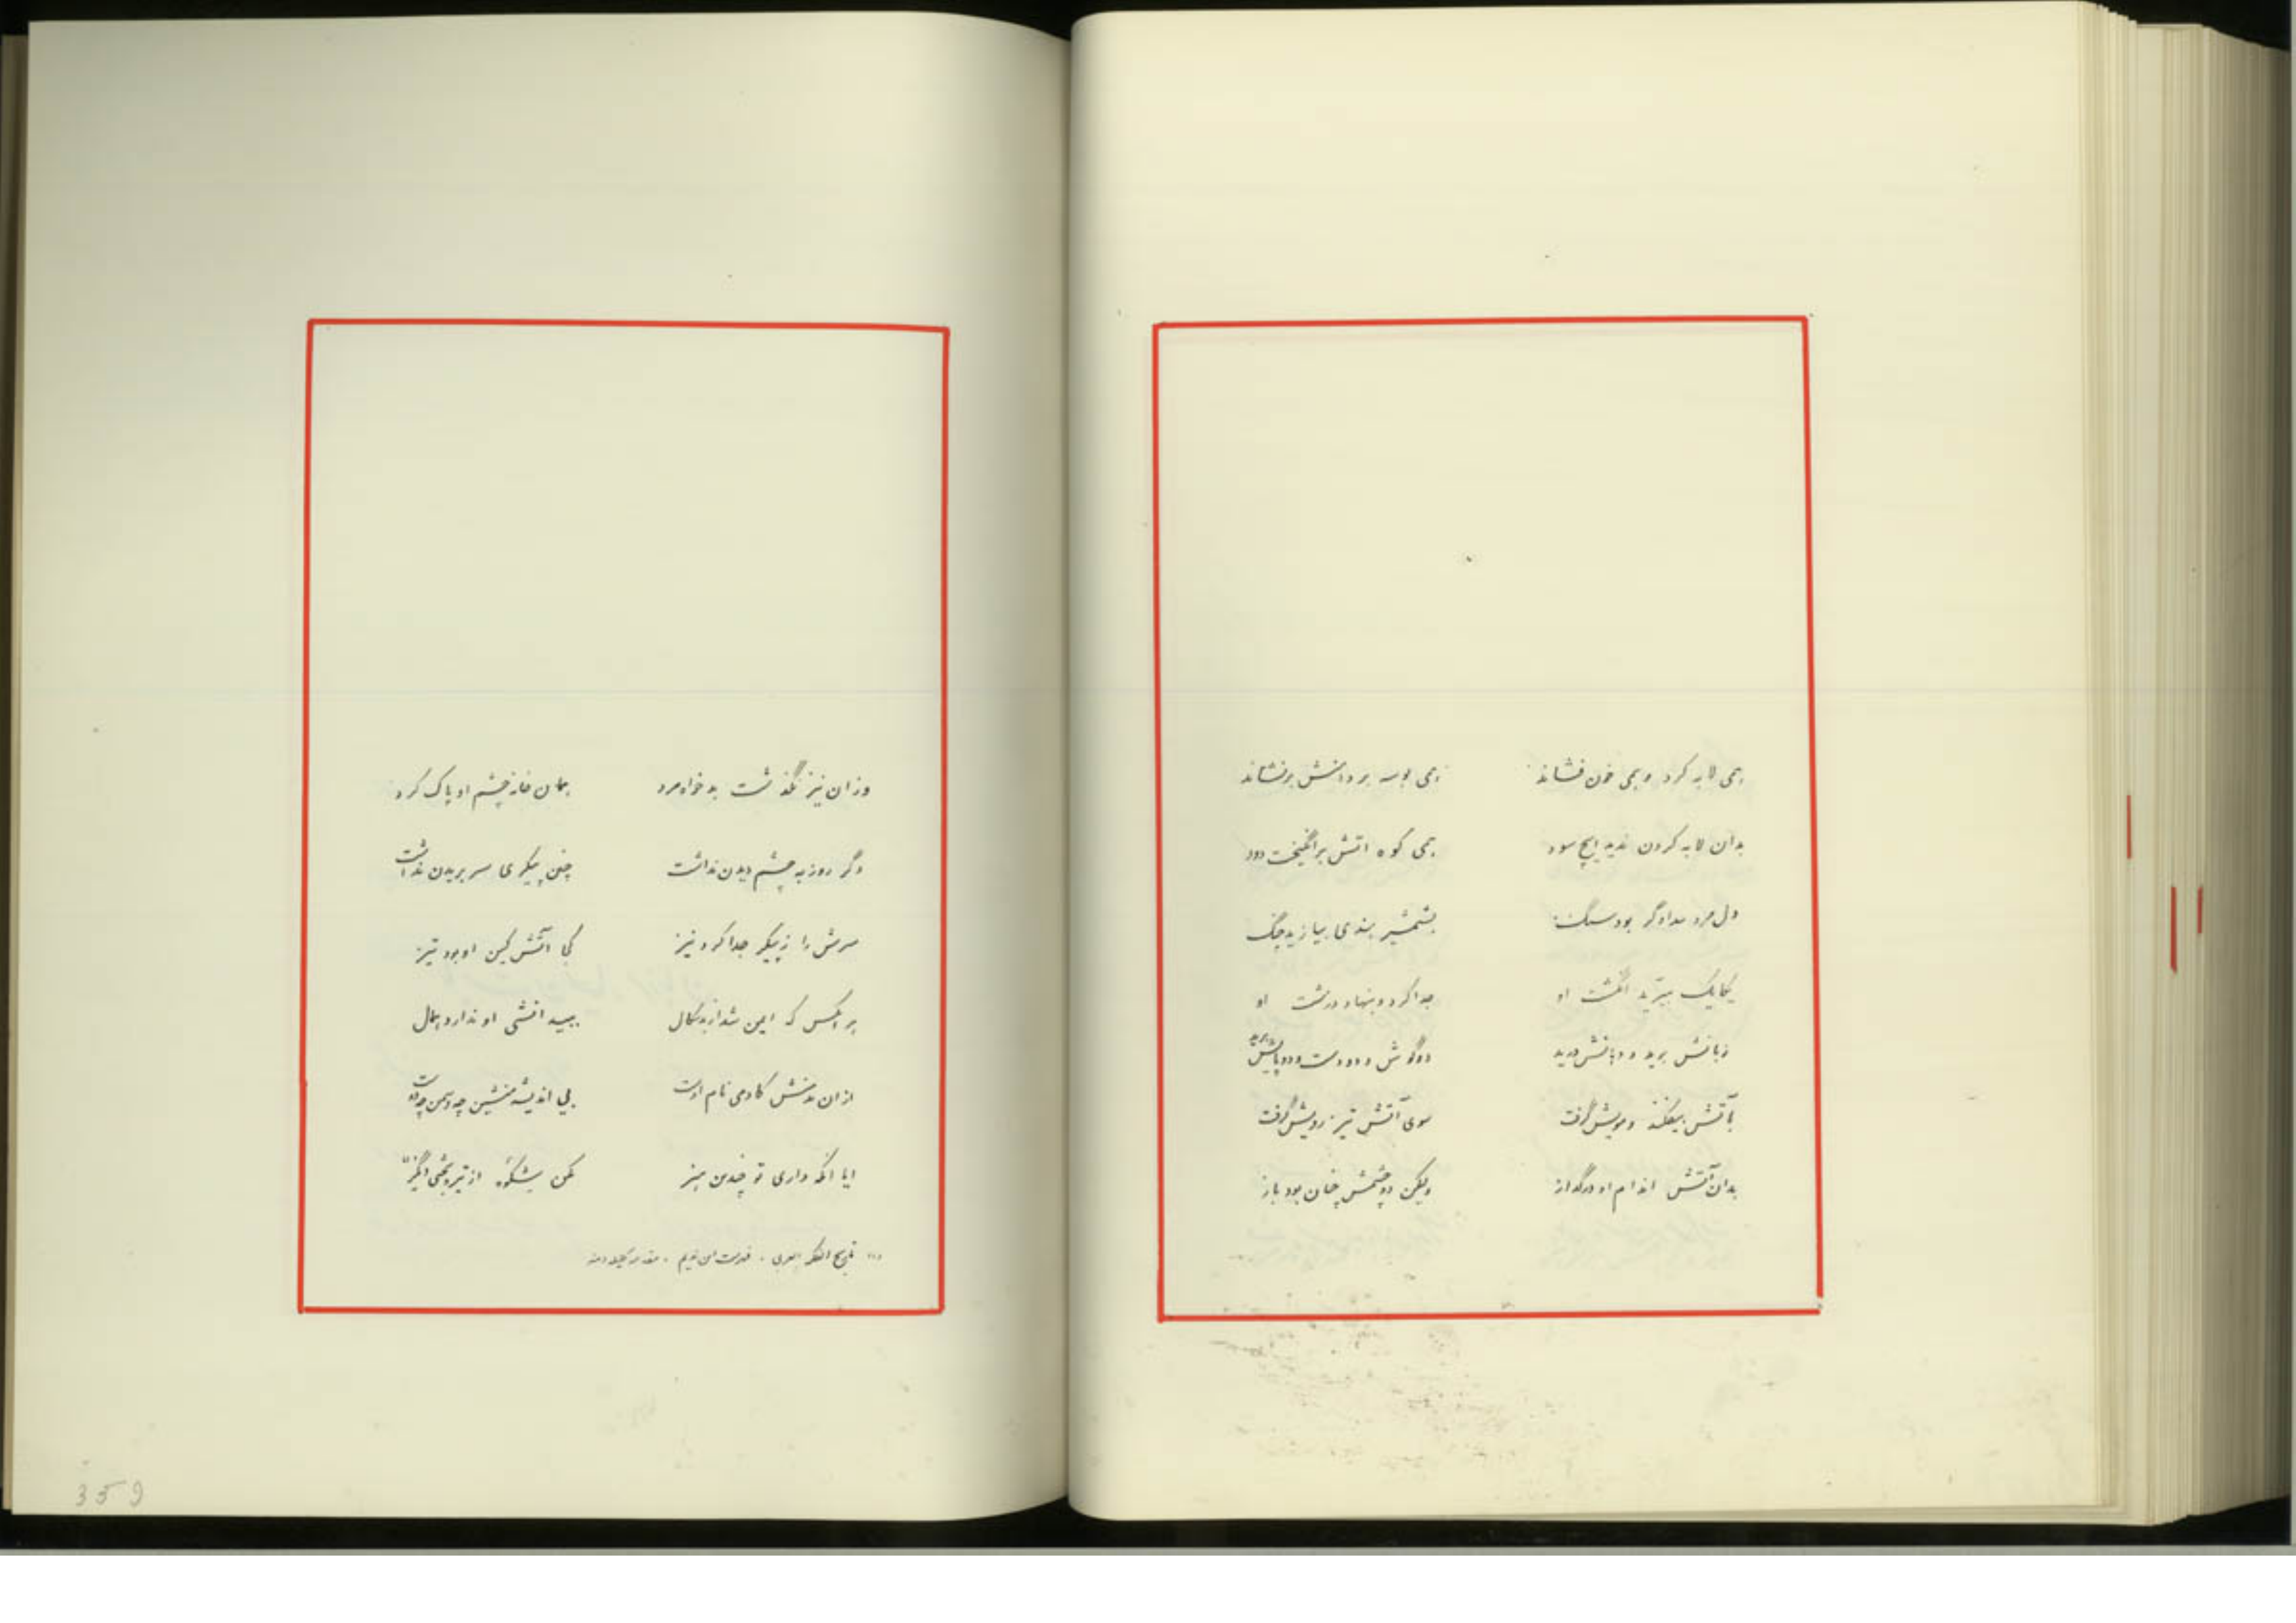 همی لابه کرد و همی خون فشاند همی بوسه بر دانش برفشاند
بدان لابه کردن ندید ایچ سود همی کوه اتش برانگیخت دود
دل مرد بدادگر بود سنگ بشمشیر هندی بیازید چنگ
یکایک ببرید انگشت او جدا کرد و بنهاد در مشت او
زبانش برید و دهانش درید دو گوش و دو دست و دو پایش برید
بآتش بیفکند و مویش گرفت سوی آتش تیز رویش گرفت
بدان آتش اندام او در گداز ولیکن دو چشمش چنان بود باز
وزان نیز نگذشت بدخواه مرد همان خانه چشم او پاک کرد
دگر روز به چشم دیدن نداشت چنین پیکری سر بریدن نداشت
سرش را ز پیکر جدا کرد نیز کجا آتش کین او بود تیز
هر انکس که ایمن شد از بدسکال
از ان منش کادمی نام اوست بی اندیشه منشین چه دشمن چه دوست
ایا انکه داری تو چندین هنر مکن
تاریخ الفکر العربی . فهرست ابن ندیم . مقدمه کلیله دمنه
359